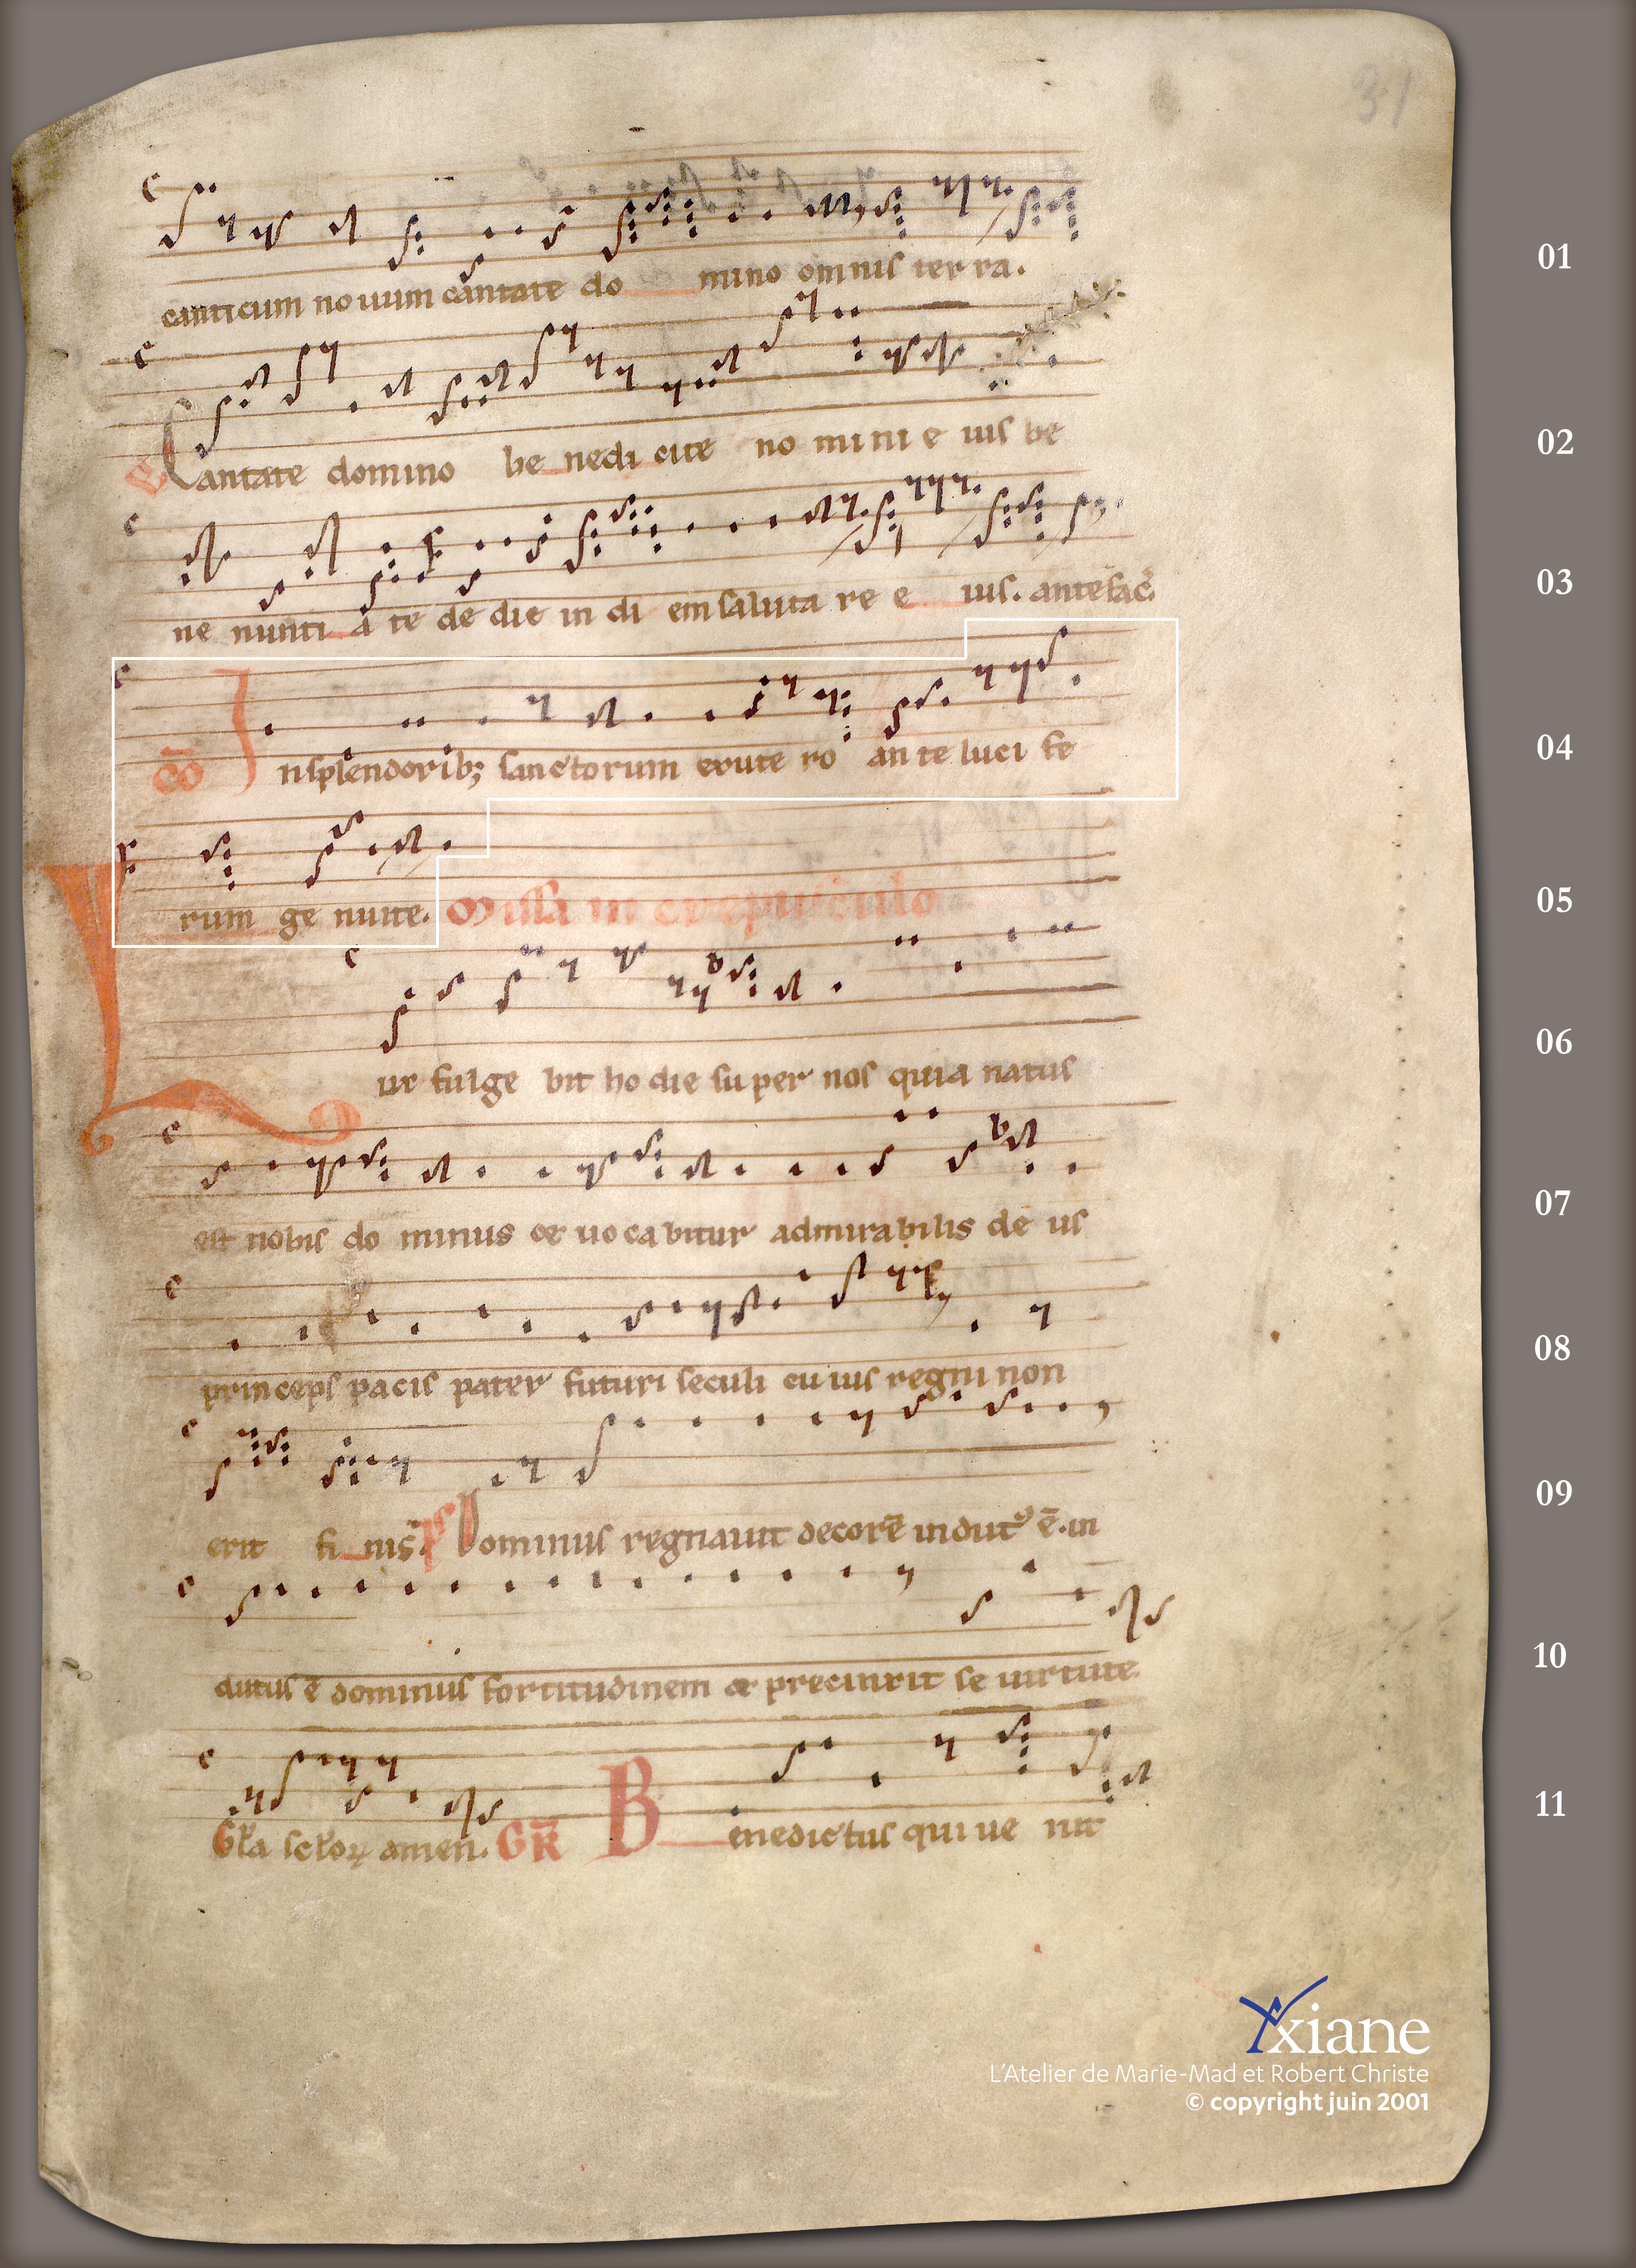 31
canticum nouum cantate do mino omnis terra.
01
Cantate domino be nedi cite no mini e ius be
02
ne nunti a te de die in di em saluta re e ius. ante sac̄.
03
cō In splendorib; sanctorum exute ro an te luci fe
04
rum ge nuite. Missa in crepusculo
05
ux fulge bit ho die super nos quia natus
06
est nobis do minus et uocabitur admirabilis de us
07
princeps pacis pater futuri seculi cuius regni non
08
erit fi nis. ps Dominus regnauit decorē indutꝰ ē. in
09
dutus ē dominus fortitudinem et precinxit se uirtute.
10
Gła scłoꝝ amen. GR̄ Benedictus qui ue nit
11
xiane
L'Atelier de Marie-Mad et Robert Christe
© copyright juin 2001